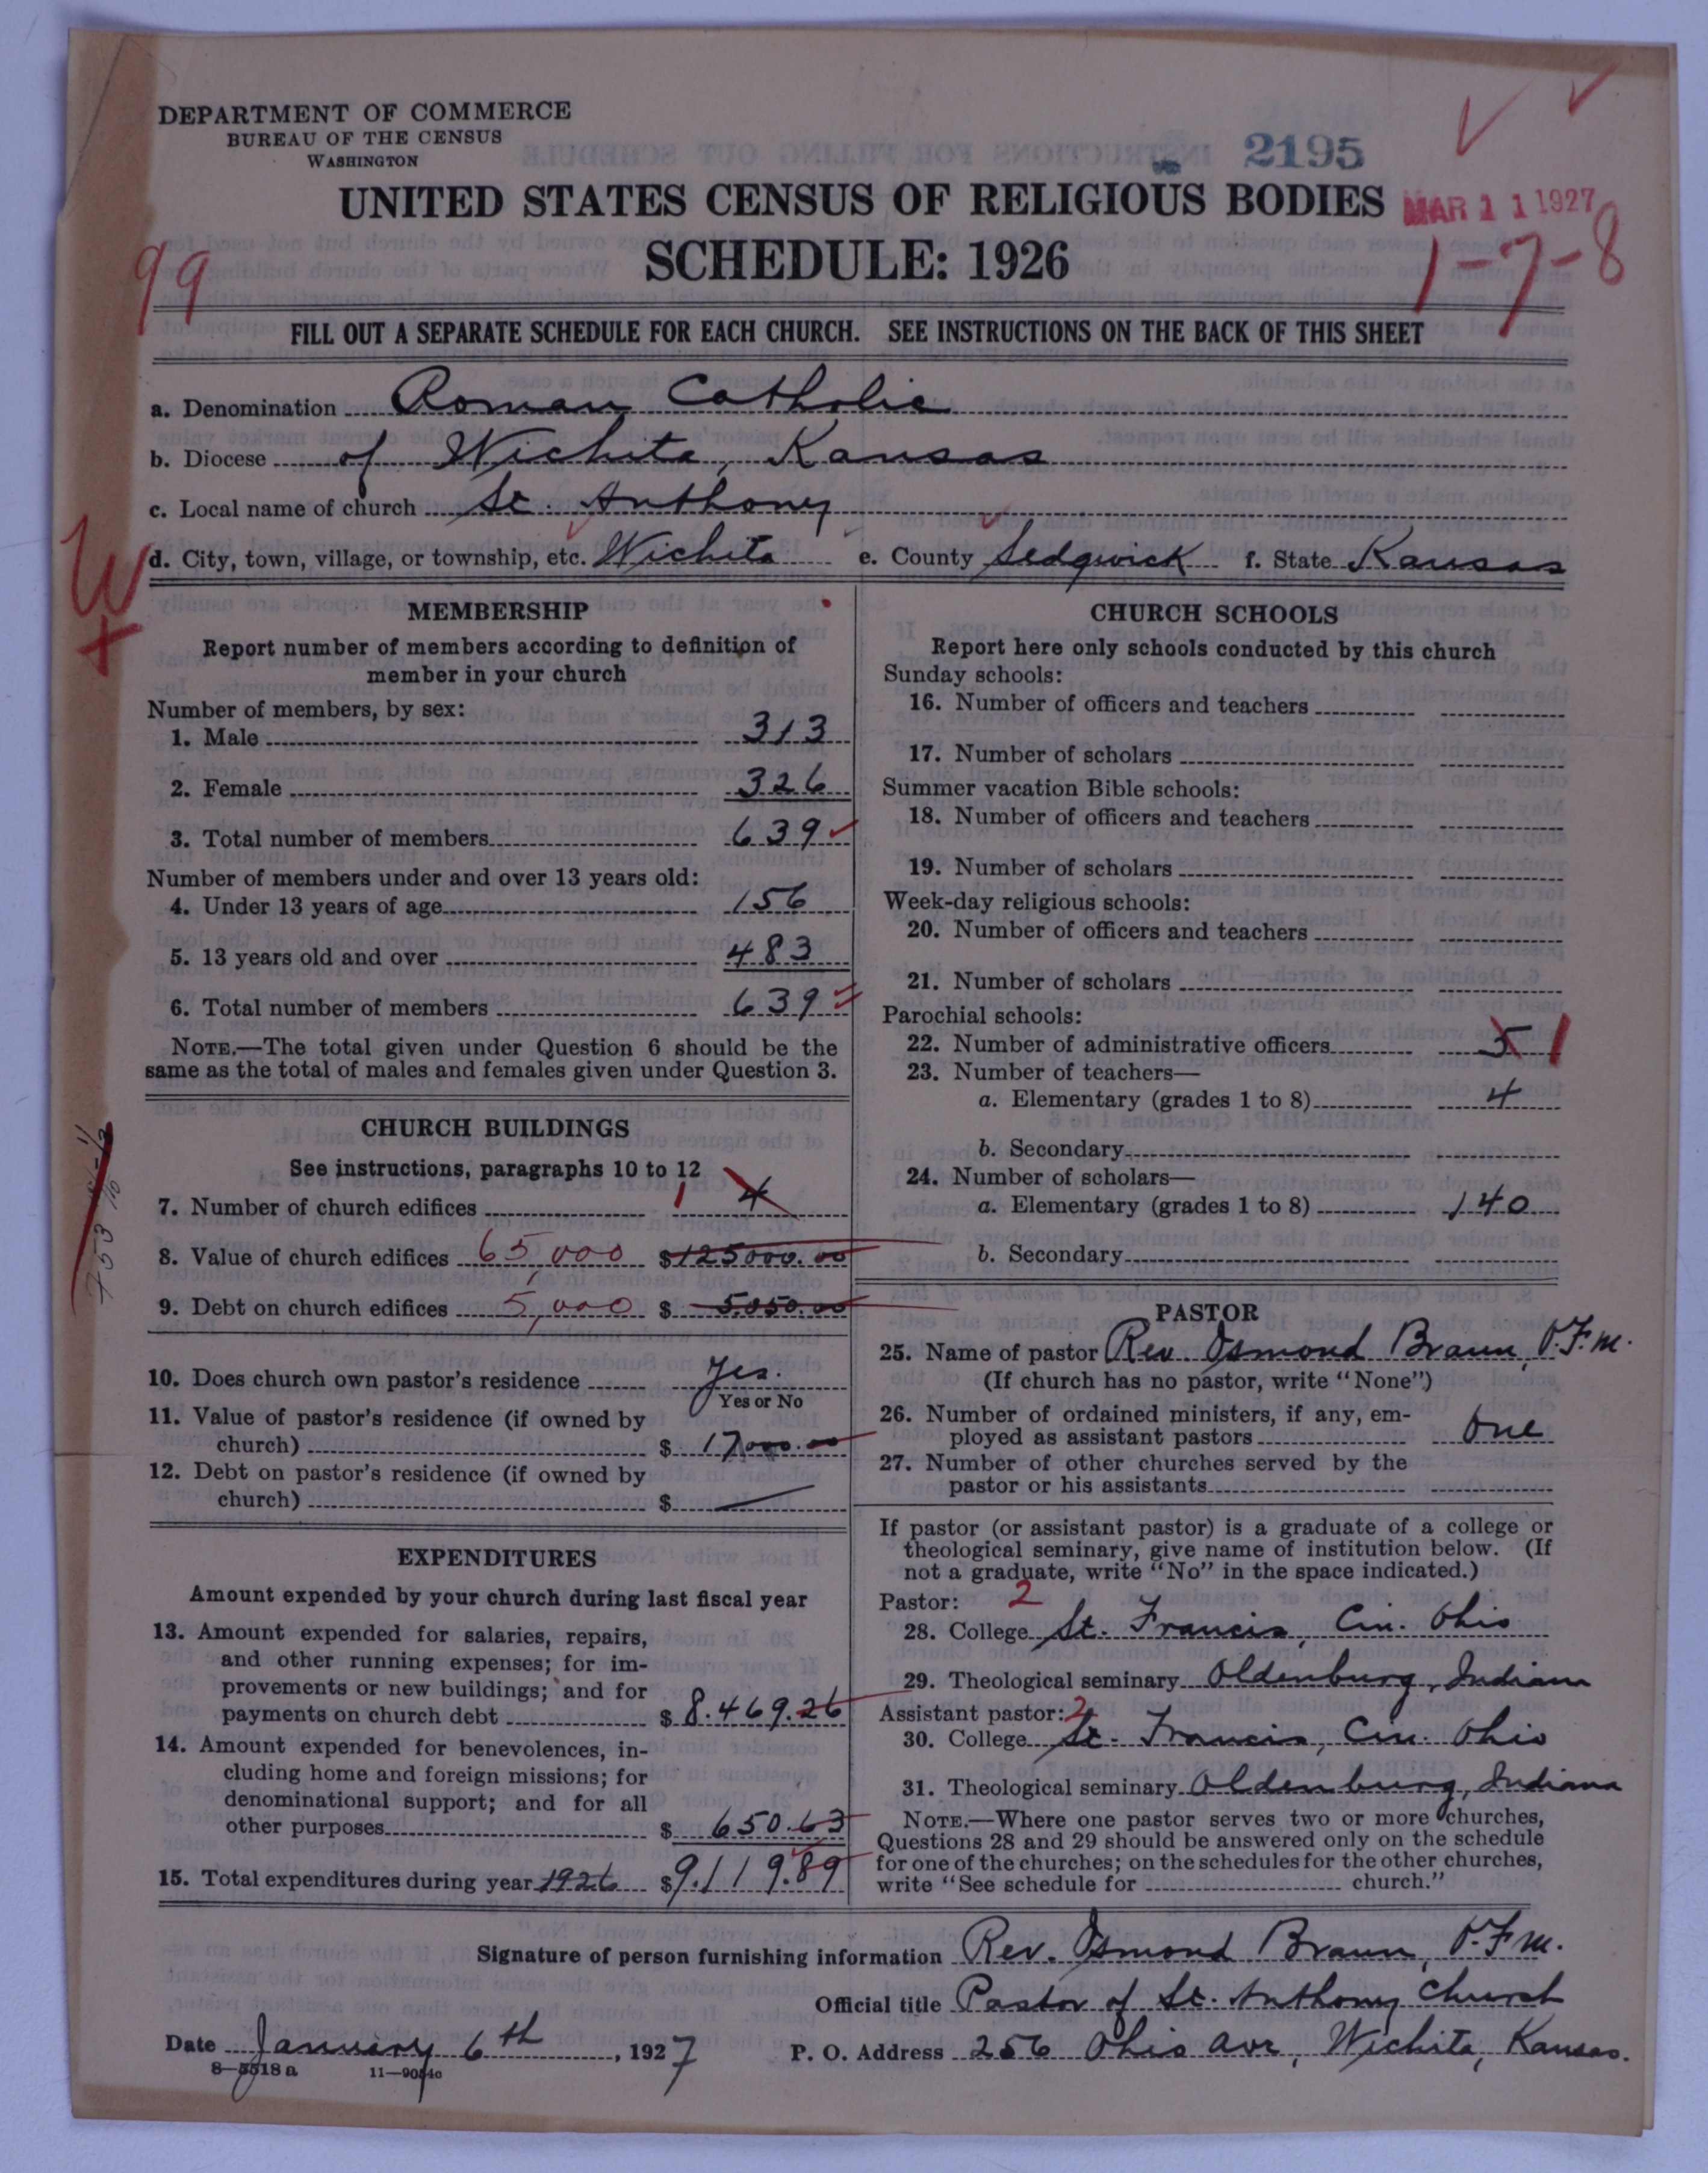 DEPARTMENT OF COMMERCE
BUREAU OF THE CENSUS
WASHINGTON
2195
UNITED STATES CENSUS OF RELIGIOUS BODIES
MAR 11 1927
SCHEDULE: 1926
1-7-8
99
FILL OUT A SEPARATE SCHEDULE FOR EACH CHURCH. SEE INSTRUCTIONS ON THE BACK OF THIS SHEET
a. Denomination Roman Catholic
b. Diocese of Wichita, Kansas
c. Local name of church St. Anthony
d. City, town, village, or township, etc. Wichita e. County Sedgwick f. State Kansas
W
+
MEMBERSHIP
Report number of members according to definition of
member in your church
Number of members, by sex:
1. Male 313
2. Female 326
3. Total number of members 639
Number of members under and over 13 years old:
4. Under 13 years of age 156
5. 13 years old and over 483
6. Total number of members 639
NOTE.—The total given under Question 6 should be the
same as the total of males and females given under Question 3.
CHURCH BUILDINGS
See instructions, paragraphs 10 to 12
7. Number of church edifices 1 4
8. Value of church edifices 65,000 $125000.00
9. Debt on church edifices 5,000 $ 5,050.00
10. Does church own pastor's residence Yes.
Yes or No
11. Value of pastor's residence (if owned by
church) $ 17,000.00
12. Debt on pastor's residence (if owned by
church) $ —
EXPENDITURES
Amount expended by your church during last fiscal year
13. Amount expended for salaries, repairs,
and other running expenses; for im-
provements or new buildings; and for
payments on church debt $ 8.469.26
14. Amount expended for benevolences, in-
cluding home and foreign missions; for
denominational support; and for all
other purposes $ 650.63
15. Total expenditures during year 1926 $9.119.89
CHURCH SCHOOLS
Report here only schools conducted by this church
Sunday schools:
16. Number of officers and teachers
17. Number of scholars
Summer vacation Bible schools:
18. Number of officers and teachers
19. Number of scholars
Week-day religious schools:
20. Number of officers and teachers
21. Number of scholars
Parochial schools:
22. Number of administrative officers 5 1
23. Number of teachers—
a. Elementary (grades 1 to 8) 4
b. Secondary
24. Number of scholars—
a. Elementary (grades 1 to 8) 140
b. Secondary
PASTOR
25. Name of pastor Rev. Osmond Braun, O.F.M.
(If church has no pastor, write "None")
26. Number of ordained ministers, if any, em-
ployed as assistant pastors One
27. Number of other churches served by the
pastor or his assistants
If pastor (or assistant pastor) is a graduate of a college or
theological seminary, give name of institution below. (If
not a graduate, write "No" in the space indicated.)
Pastor: 2
28. College St. Francis, Cin. Ohio
29. Theological seminary Oldenburg, Indiana
Assistant pastor: 2
30. College St. Francis, Cin. Ohio
31. Theological seminary Oldenburg, Indiana
NOTE.—Where one pastor serves two or more churches,
Questions 28 and 29 should be answered only on the schedule
for one of the churches; on the schedules for the other churches,
write "See schedule for church."
Signature of person furnishing information Rev. Osmond Braun, O.F.M.
Official title Pastor of St. Anthony Church
Date January 6th, 1927 P. O. Address 256 Ohio Ave, Wichita, Kansas.
8—5518 a 11—9054a